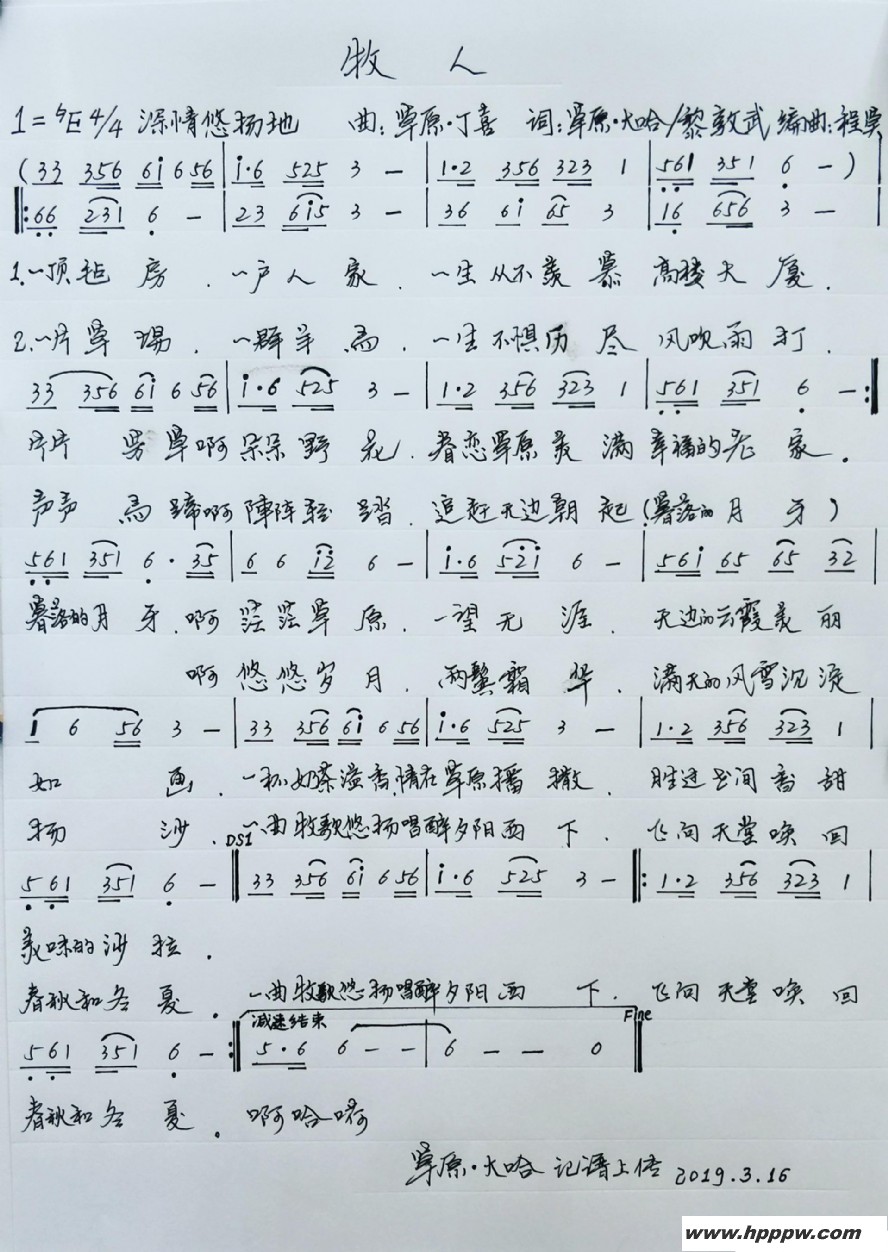 牧 人
1=♮E 4/4 深情悠扬地 曲:草原·丁喜 词:草原·大哈/黎敦武 编曲:程昊
(33 356 6i 6 56 | i·6 525 3 - | 1·2 356 323 1 | 561 351 6 - )
|: 66 231 6 - | 23 6i5 3 - | 36 6i 65 3 | 16 656 3 - |
1.一顶毡房.一户人家.一生从不羡慕高楼大厦.
2.一片草场.一群羊马.一生不惧历尽风吹雨打.
33 356 6i 6 56 | i·6 525 3 - | 1·2 356 323 1 | 561 351 6 - :|
片片芳草啊朵朵野花.眷恋草原美满幸福的老家.
声声马蹄啊陣阵轻踏.追赶天边朝起(暮落的月牙)
561 351 6 · 35 | 6 6 i2 6 - | i·6 52i 6 - | 56i 65 65 32 |
暮落的月牙.啊茫茫草原.一望无涯.天边的云霞美丽
啊悠悠岁月.两鬓霜华.满天的风雪沉淀
i 6 56 3 - | 33 356 6i 6 56 | i·6 525 3 - | 1·2 356 323 1 |
如画.一杯奶茶溢香情在草原播撒.胜过世间香甜
扬沙.一曲牧歌悠扬唱醉夕阳西下.飞向天堂唤回
DS1
561 351 6 - || 33 356 6i 6 56 | i·6 525 3 - |: 1·2 356 323 1 |
美味的沙拉.
春秋和冬夏.一曲牧歌悠扬唱醉夕阳西下.飞向天堂唤回
减速结束 Fine
561 351 6 - :| 5·6 6 - - | 6 - - 0 ||
春秋和冬夏.啊哈嗬
草原·大哈 记谱上传 2019.3.16
www.hpppw.com